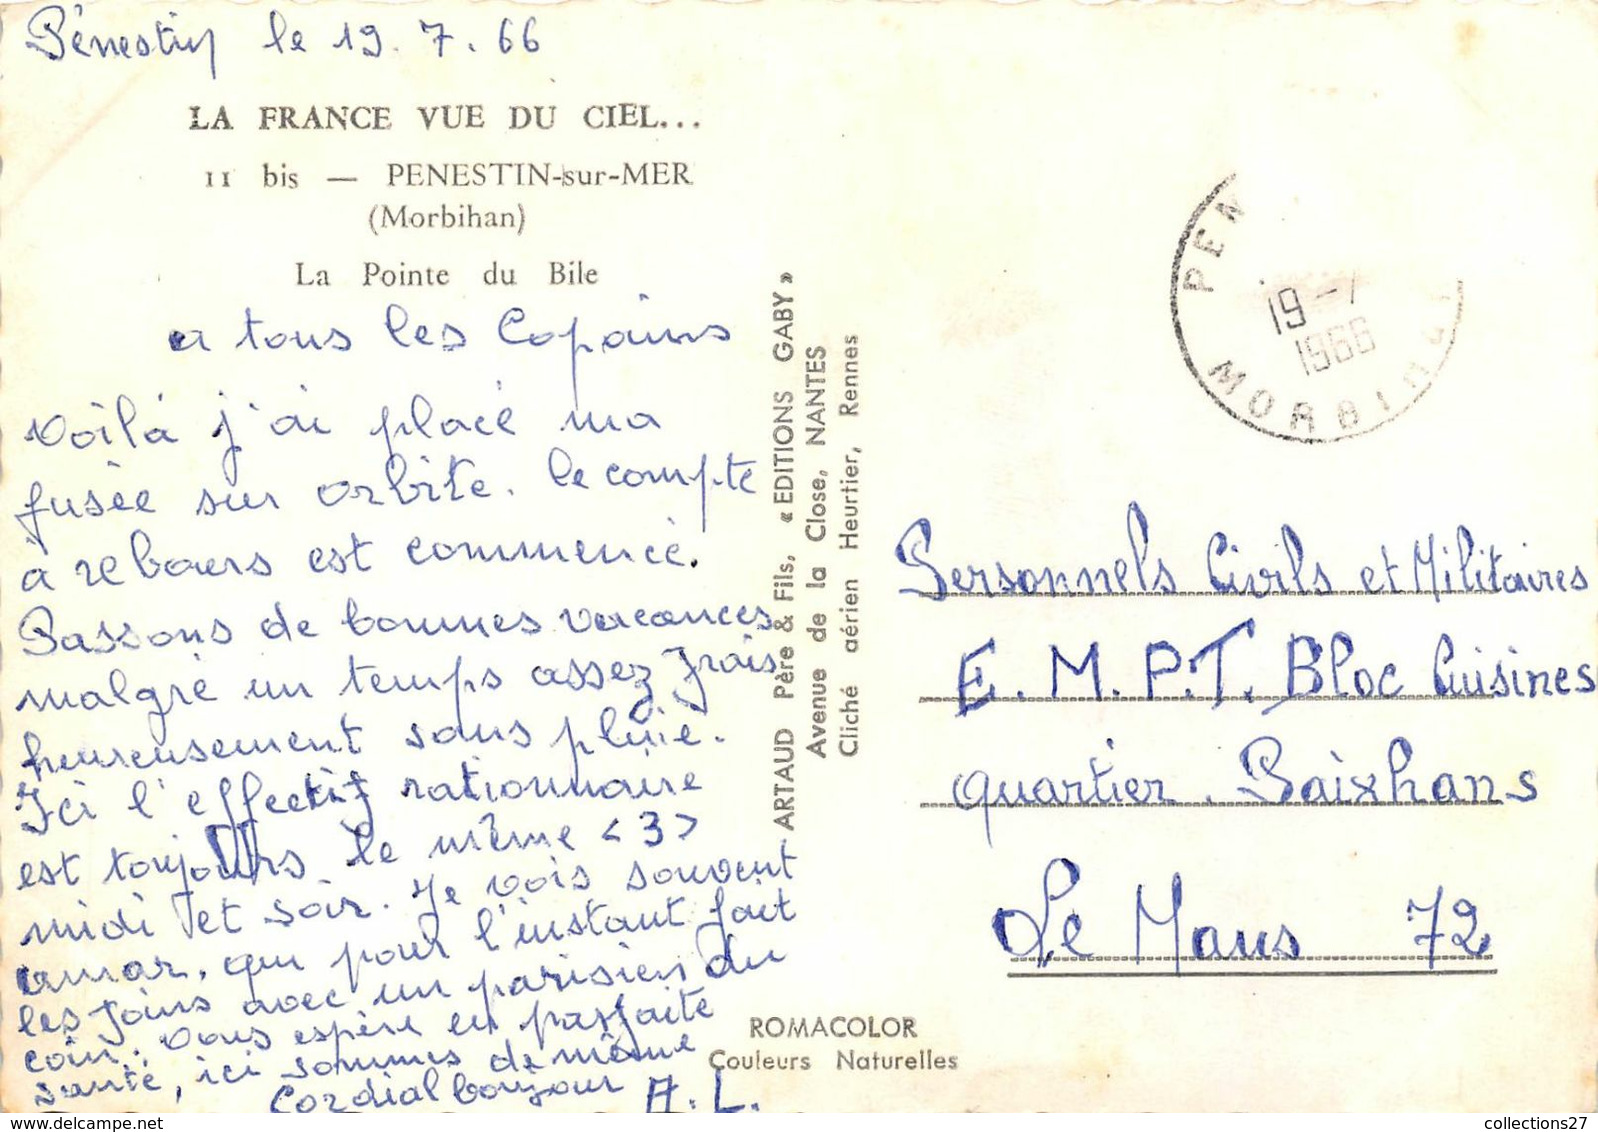 Pénestin le 19.7.66
LA FRANCE VUE DU CIEL...
11 bis — PENESTIN-sur-MER
(Morbihan)
La Pointe du Bile
a tous les Copains
Voilà j'ai placé ma
fusée sur orbite. le compte
à rebours est commencé.
Passons de bonnes vacances
malgré un temps assez frais
heureusement sans pluie.
Ici l'effectif rationnaire
est toujours le même <3>
midi et soir. Je vois souvent
amar, qui pour l'instant fait
les foins avec un parisien du
coin. Vous espère en parfaite
santé, ici sommes de même
Cordial bonjour A.L.
ARTAUD Père & Fils, « EDITIONS GABY »
Avenue de la Close, NANTES
Cliché aérien Heurtier, Rennes
ROMACOLOR
Couleurs Naturelles
PEN
19-7
1966
MORBIHAN
Personnels Civils et Militaires
E.M.P.T. Bloc Cuisines
quartier. Paixhans
Le Mans 72
collections27